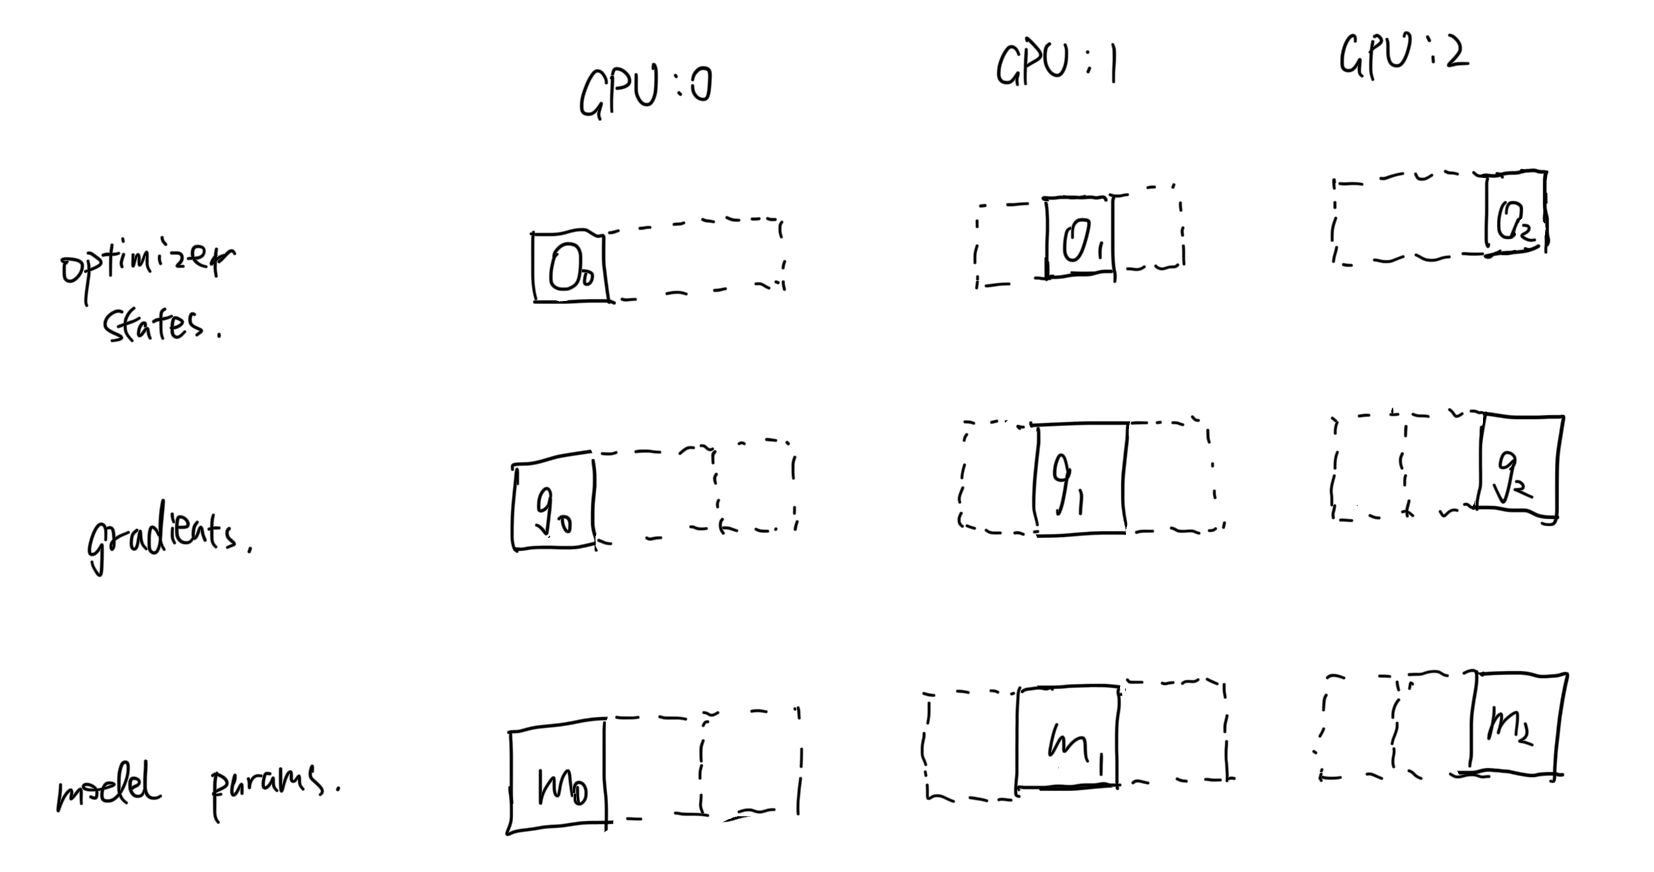 GPU:0
GPU:1
GPU:2
optimizer
states.
O₀
O₁
O₂
gradients.
g₀
g₁
g₂
model params.
m₀
m₁
m₂